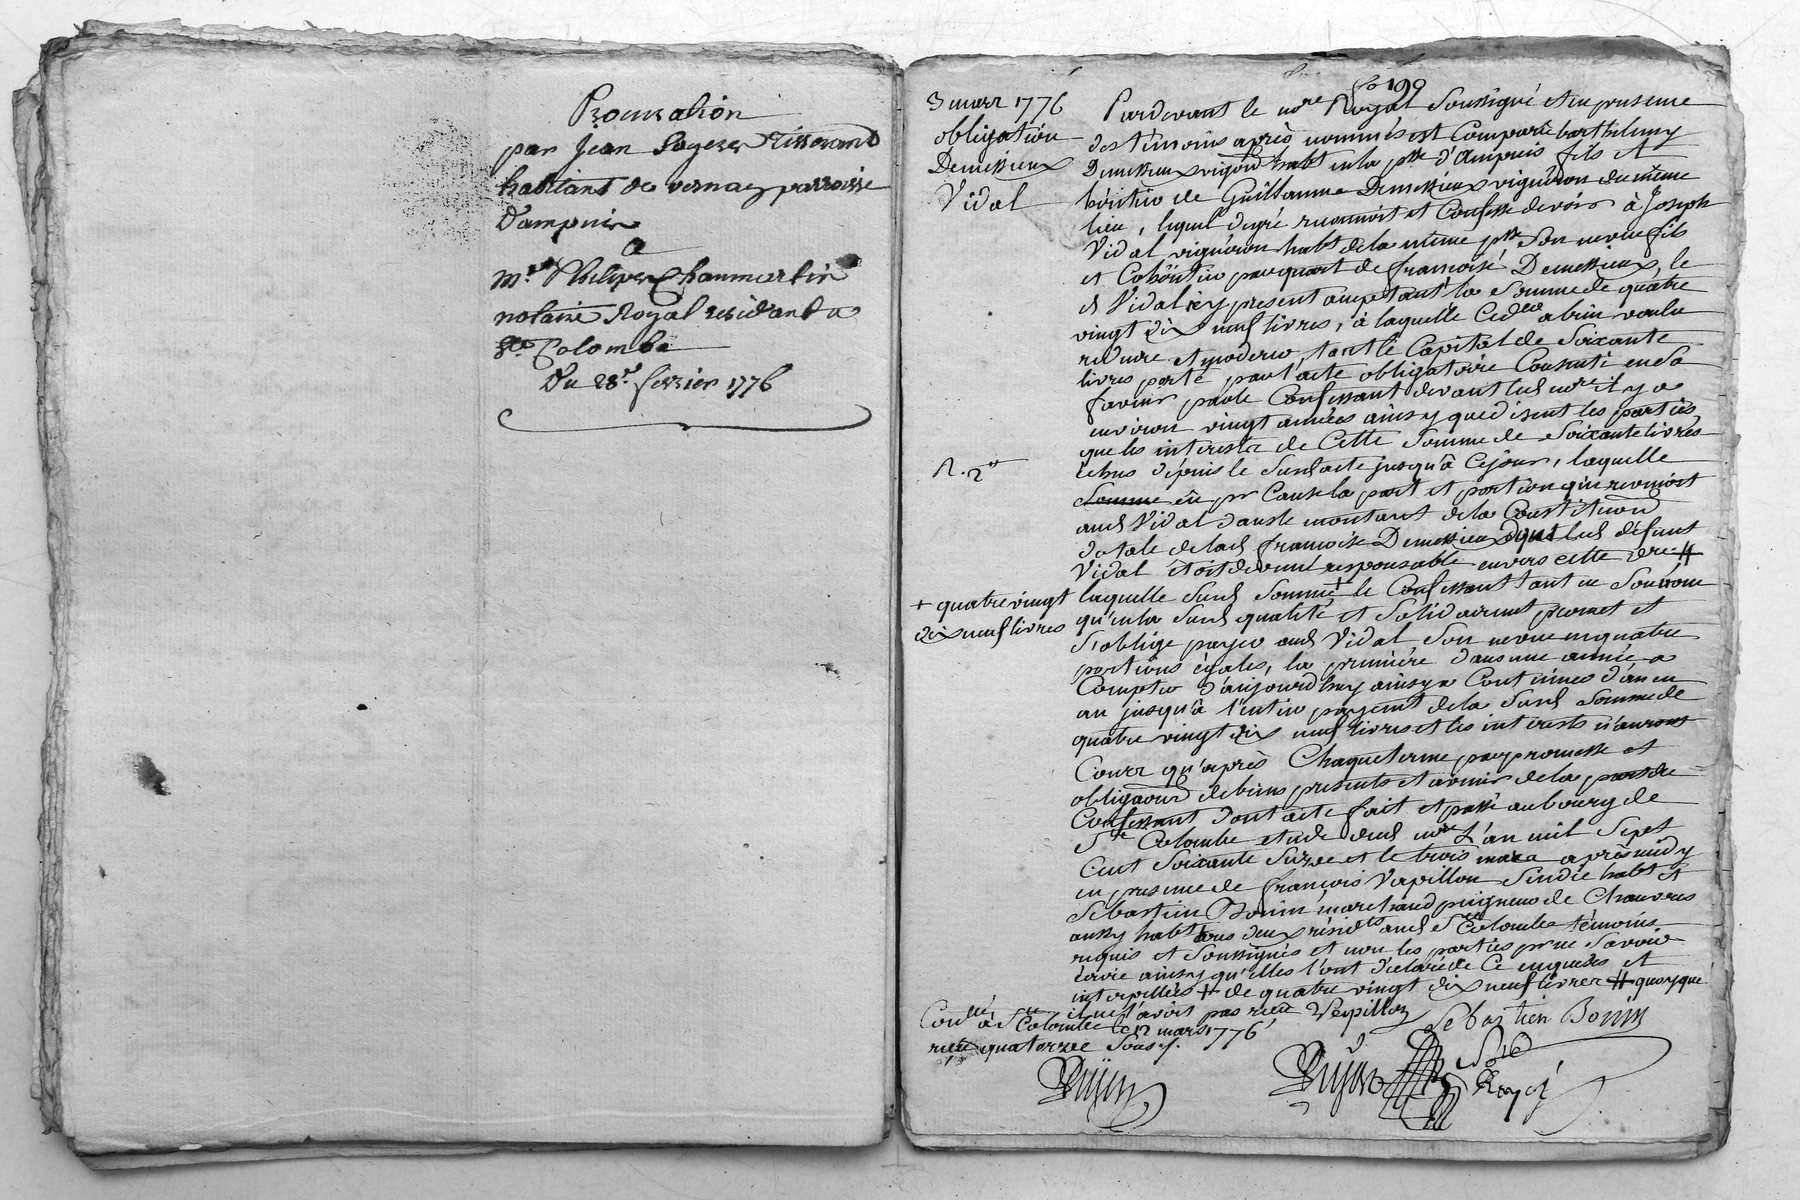 Procuration
par Jean Sageres Tisserand
habitant de vernay parroisse
D'ampuis
a
m.e Philipe Chaumartin
notaire Royal residant a
Ste Colombe
Du 28.e fevrier 1776
fo 199
3 mars 1776
obligation
Demessieux
Vidal
R. 2#
+ quatre vingt
dix neuf livres
Pardevant le nore Royal Soussigné et en presence
des témoins après nommés est Comparu barthelemy
Demessieux vigñon habt en la psse d'Ampuis fils et
héritier de Guillaume Demessieux vigneron du même
lieu, lequel de gré reconnoit et Confesse devoir à Joseph
Vidal, vigneron habt de la même psse Son neveu fils
et Cohéritier pour quart de françoise Demessieux, le
d Vidal icy present acceptant la Somme de quatre
vingt dix neuf livres, à laquelle Ced a bien voulu
reduire et moderer, tant le Capital de Soixante
livres porté par l'acte obligatoire Consenti en Sa
faveur par le Confessant devant led nore il y a
environ vingt années ainsy que disent les parties,
que les interests de Cette Somme de Soixante livres
echus depuis le Susd acte jusqu'à Ce jour, laquelle
Somme en pr Cause la part et portion qui revenoit
aud Vidal dans le montant de la Constitution
dotale de lad françoise Demessieux dont led défunt
Vidal étoit devenu responsable envers cette dre #
laquelle Susd Somme + le Confessant tant en Son nom
qu'en la Susd qualité et Solidairement promet et
s'oblige payer aud Vidal Son neveu en quatre
portions égales, la première dans une année a
Compter d'aujourd'huy ainsy a Continuer d'an en
an jusqu'à l'entier payement de la Susd Somme de
quatre vingt dix neuf livres et les interests n'auront
Cours qu'après Chaque terme par promesse et
obligaon de biens presents et avenir de la part du
Confessant dont acte fait et passé au bourg de
Ste Colombe etude dud nore L'an mil Sept
Cent Soixante Seize et le trois mars après midy
en presence de françois Verpillon Sindic habt et
Sebastien Bonin marchand peigneur de Chanvres
aussy habt tous deux residts aud Ste Colombe témoins
requis et Soussignés et non les parties pr ne Savoir
écrire ainsy qu'elles l'ont declaré de Ce enquises et
interpellées + de quatre vingt dix neuf livres # quoyque
il ne l'avoit pas reçu Verpillon Sebastien Bonin
Conlé à Ste Colombe le 12 mars 1776
reçu quatorze Sous.
Dujon
Dujon
Nore
Royal